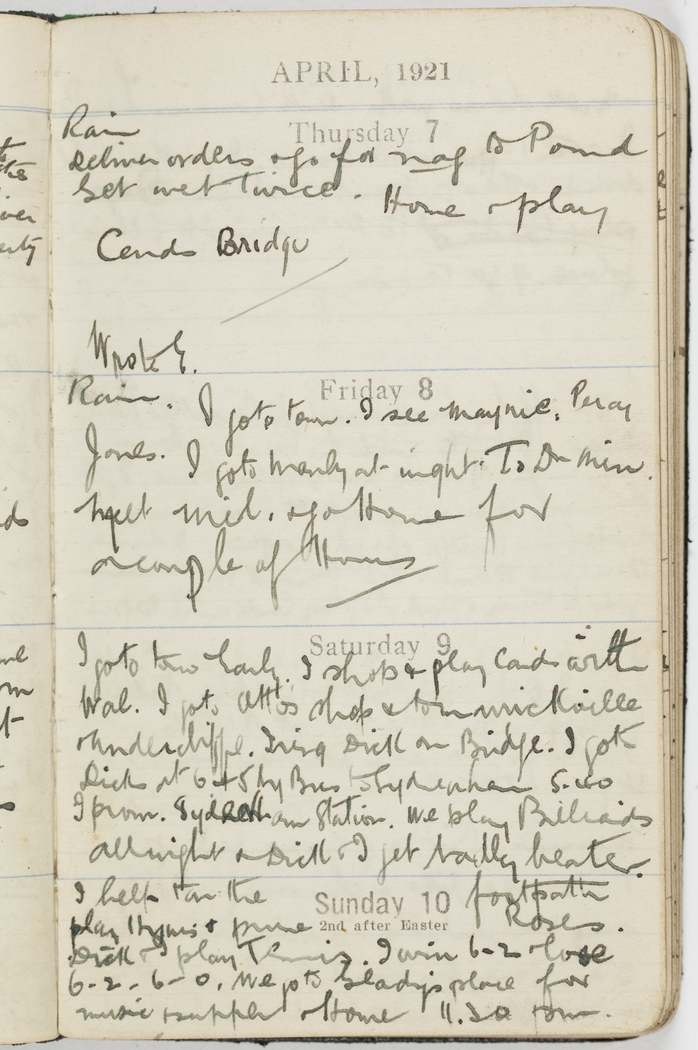 APRIL, 1921
Thursday 7
Rain
Deliver orders & go for nag to Pound
Get wet twice. Home & play
Cards Bridge
Wrote E.
Friday 8
Rain. I go to town. I see Maynie, Percy
Jones. I go to Manly at night. To Dr
Mid. & go Home for
a couple of Hours
Saturday 9
I go to town Early. I shop & play Cards with
Wal. I go to Otto's shop & to Marrickville
& Undercliffe. Dick on Bridge. I go to
Dicks at 6 + by Bus to Sydenham 5-40
I from. Sydenham Station. We play Billiards
all night & Dick & I get badly beaten.
Sunday 10
2nd after Easter
I help tar the footpath
play Hymns & prune Roses.
Dick & I play Tennis. I win 6-2 & lose
6-2. 6-0. We go to Gladys place for
music & supper & Home 11.30